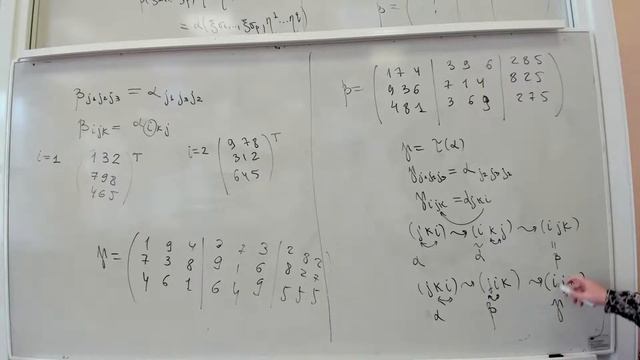 = α(ξσ₁...ξσp, η²...η²)
β_{j₁j₂j₃} = α_{j₁j₃j₂}
β_{ijk} = α_{ikj}
i=1 (1 3 2 / 7 9 8 / 4 6 5)^T i=2 (9 7 8 / 3 1 2 / 6 4 5)^T
γ = (1 9 4 | 2 7 3 | 2 8 2
7 3 8 | 9 1 6 | 8 2 7
4 6 1 | 6 4 9 | 5 5 5)
β = (1 7 4 | 3 9 6 | 2 8 5
9 3 6 | 7 1 4 | 8 2 5
4 8 1 | 3 6 9 | 2 7 5)
γ = τ(α)
γ_{j₁j₂j₃} = α_{j₂j₃j₁}
γ_{ijk} = α_{jki}
(jki) ⇝ (ikj) ⇝ (ijk)
α α̃ = β
(jki) ⇝ (jik) ⇝ (ij
α β γ